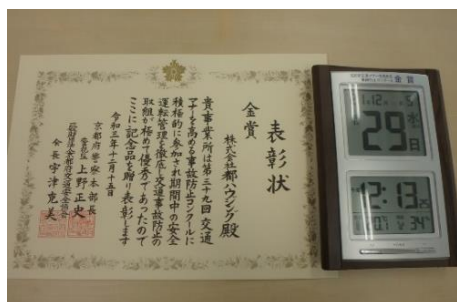 表彰状
金賞
株式会社都ハウジング殿
貴事業所は第三十九回交通
マナーを高める事故防止コンクールに
積極的に参加され期間中の安全
運転管理を徹底し交通事故防止の
取組が極めて優秀であったので
ここに記念品を贈り表彰します
令和三年十二月十五日
京都府警察本部長
警視監 上野正史
会長 宇津克美
金賞
12
29
水
日
12:13
34